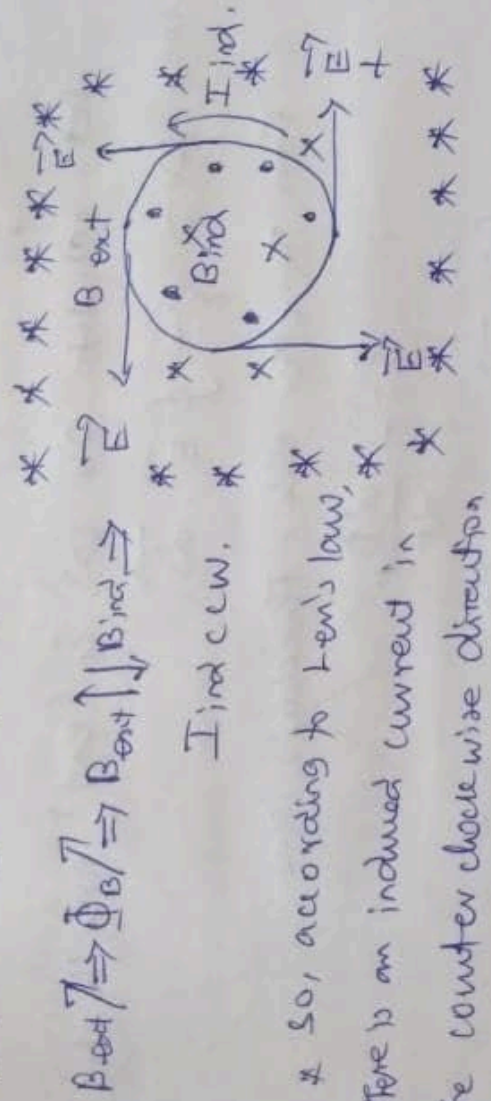 B ext ↗ ⇒ Φ_B ↗ ⇒ B ext ↑↓ B ind ⇒
I ind CCW.
* So, acording to Len's law,
there is an induced current in
counter clockwise direction
E→
B ext
E→
B ind
I ind.
E→
E→